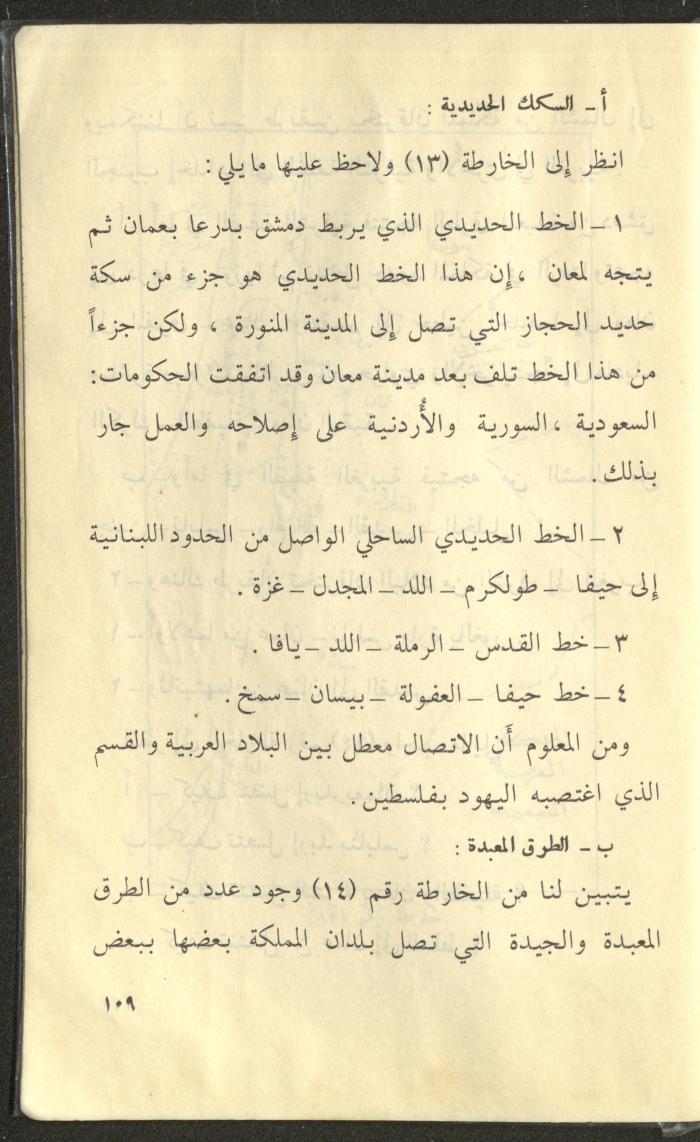 أ ــ السكك الحديدية :
انظر إِلى الخارطة (١٣) ولاحظ عليها ما يلي :
١ ــ الخط الحديدي الذي يربط دمشق بدرعا بعمان ثم
يتجه لمعان ، إِن هذا الخط الحديدي هو جزء من سكة
حديد الحجاز التي تصل إِلى المدينة المنورة ، ولكن جزءاً
من هذا الخط تلف بعد مدينة معان وقد اتفقت الحكومات :
السعودية ، السورية والأُردنية على إِصلاحه والعمل جار
بذلك .
٢ ــ الخط الحديدي الساحلي الواصل من الحدود اللبنانية
إِلى حيفا ــ طولكرم ــ اللد ــ المجدل ــ غزة .
٣ ــ خط القدس ــ الرملة ــ اللد ــ يافا .
٤ ــ خط حيفا ــ العفولة ــ بيسان ــ سمخ .
ومن المعلوم أَن الاتصال معطل بين البلاد العربية والقسم
الذي اغتصبه اليهود بفلسطين .
ب ــ الطرق المعبدة :
يتبين لنا من الخارطة رقم (١٤) وجود عدد من الطرق
المعبدة والجيدة التي تصل بلدان المملكة بعضها ببعض
١٠٩